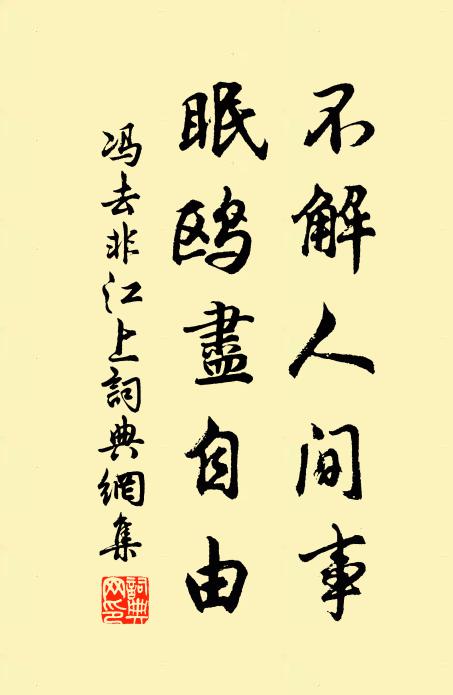 不解人间事
眠鸥盡自由
冯去非江上詞典網集
詞典网印